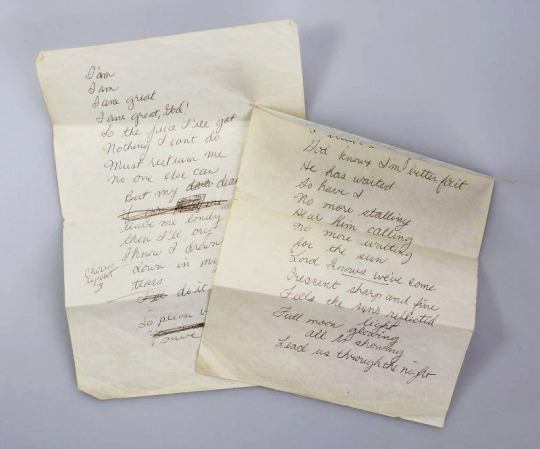 I'am
I am
I am great
I am great, God!
So the juice I've got
Nothing I can't do
Must return me
no one else can
But my dear
leave me lonely
then I'll cry
I know I drown
Chorus
repeat
3
down in my
tears
do it
So please
I swear
God knows I'm better for it
He has waited
So have I
No more stalling
Hear Him calling
No more waiting
for the sun
Lord knows we've come
Crescent sharp and fine
Tells the suns reflected
light
Full moon glowing
all is showing
Lead us through the night